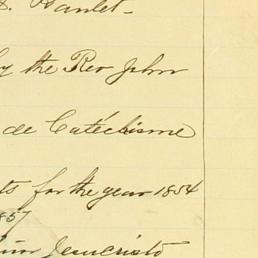 Hamlet -
by the Rev John
de Catéchisme
ts for the year 1854
1857
Jesucristo